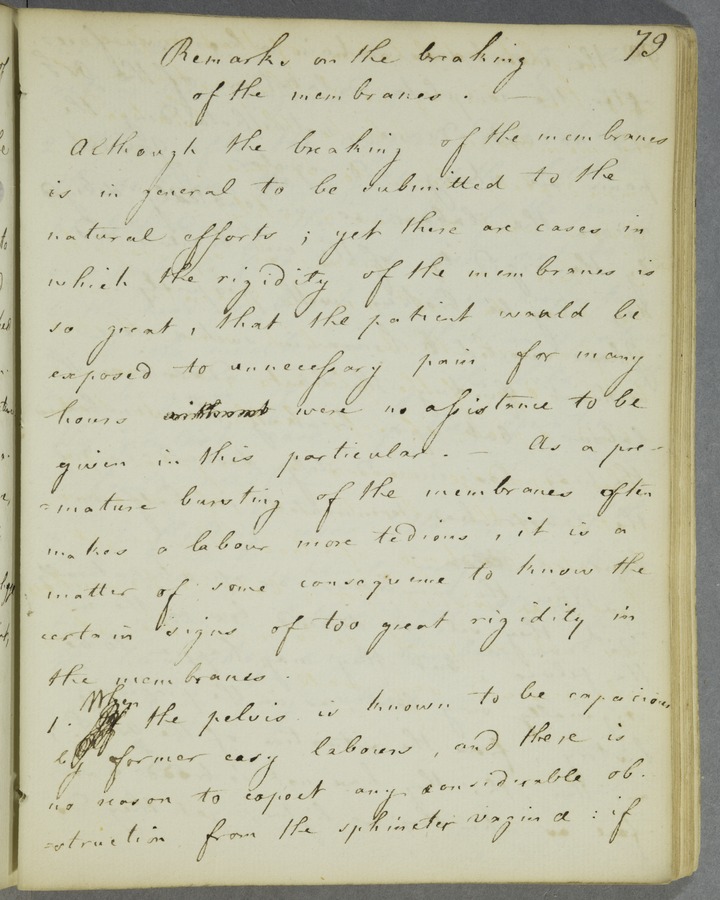 79
Remarks on the breaking
of the membranes. —
Although the breaking of the membranes
is in general to be submitted to the
natural efforts; yet there are cases in
which the rigidity of the membranes is
so great, that the patient would be
exposed to unnecessary pain for many
hours were no assistance to be
given in this particular. — As a pre-
=mature bursting of the membranes often
makes a labour more tedious, it is a
matter of some consequence to know the
certain signs of too great rigidity in
the membranes.
1. When the pelvis is known to be capacious
by former easy labours, and there is
no reason to expect any considerable ob-
=struction from the sphincter vaginæ: if